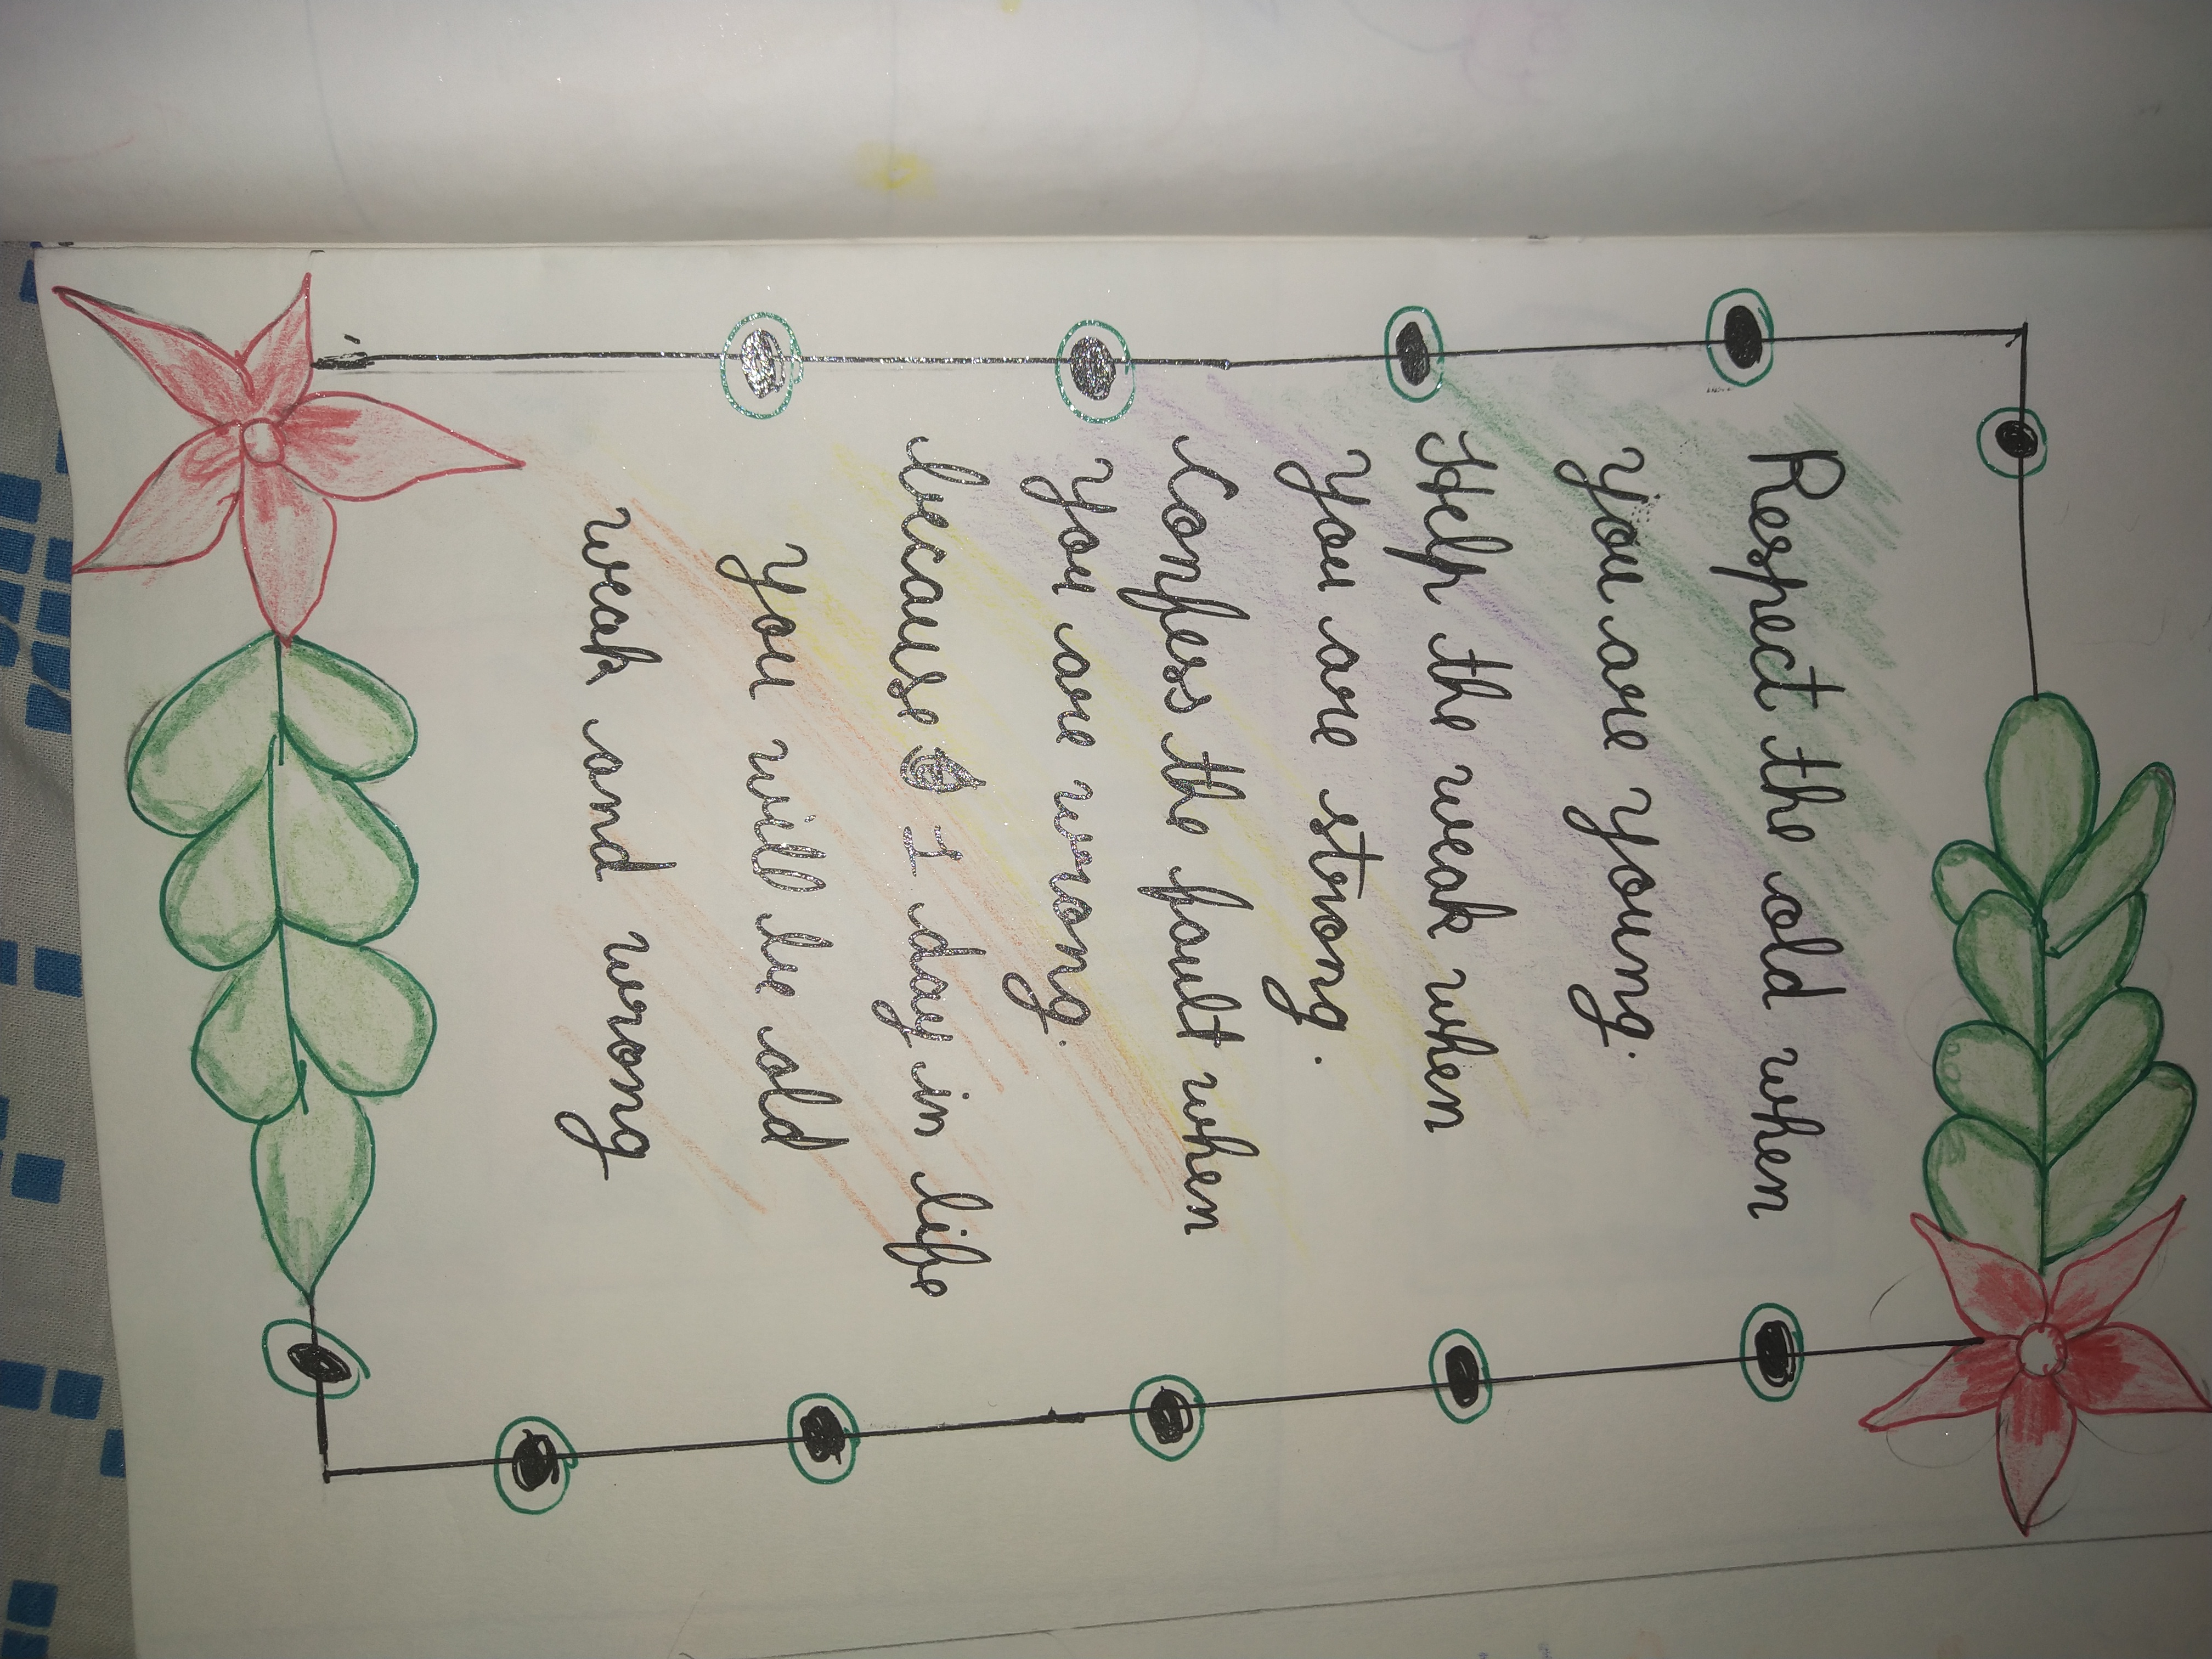 Respect the old when
you are young.
Help the weak when
You are strong.
Confess the fault when
You are wrong.
because 1 day in life
you will be old
weak and wrong